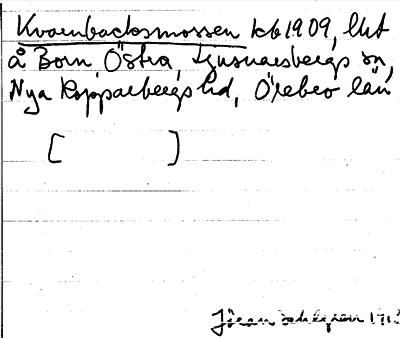 Kvarnbacksmossen kb 1909, lht
å Born Östra, Ljusnarsbergs sn,
Nya Kopparbergs hd, Örebro län
[ ]
Jöran Sahlgren